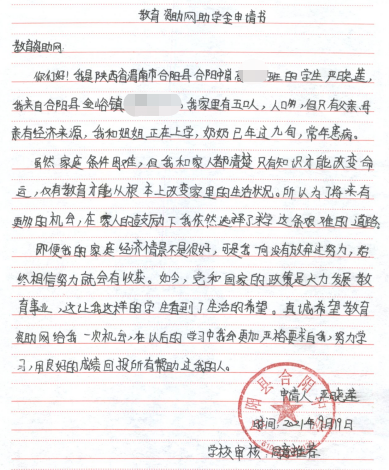 教育资助网助学金申请书
教育资助网:
你们好!我是陕西省渭南市合阳县合阳中 班的学生 严晓莲,
我来自合阳县 峪镇 ,我家里有五口人,人口 ,但只有父亲、母
亲有经济来源,我和姐姐正在上学,奶奶已年过九旬,常年患病。
虽然家庭条件困难,但我和家人都清楚只有知识才能改变命
运,仅有教育才能从根本上改变家里的生活状况。所以为了将来有
更 的机会,在家人的鼓励下我依然选择了求学这条艰难的道路。
即便我的家庭经济情景不是很好,可是我一向没有放弃过努力,始
终相信努力就会有收获。如今,党和国家的政策是大力发展教
育事业,这让我这样的学生看到了生活的希望。真诚希望教育
资助网给我一次机会,在以后的学习中我会更加严格要求自我,努力学
习,用良好的成绩回报所有帮助过我的人。
申请人 严晓莲
时间:2021年9月9日
学校审核